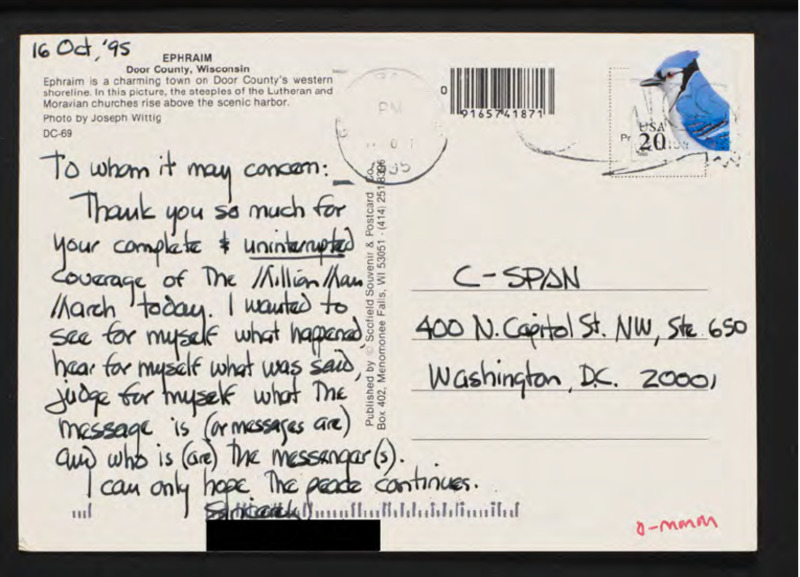 16 Oct, '95
EPHRAIM
Door County, Wisconsin
Ephraim is a charming town on Door County's western
shoreline. In this picture, the steeples of the Lutheran and
Moravian churches rise above the scenic harbor.
Photo by Joseph Wittig
DC-69
To whom it may concern:
Thank you so much for
your complete & uninterrupted
coverage of The Million Man
March today. I wanted to
see for myself what happened,
hear for myself what was said,
judge for myself what The
message is (or messages are)
and who is (are) The messenger(s).
I can only hope The peace continues.
Published by © Scofield Souvenir & Postcard Co.
Box 402, Menomonee Falls, WI 53051 - (414) 251
PM
0
9165741871
USA
20
C-SPAN
400 N. Capitol St. NW, Ste 650
Washington, D.C. 20001